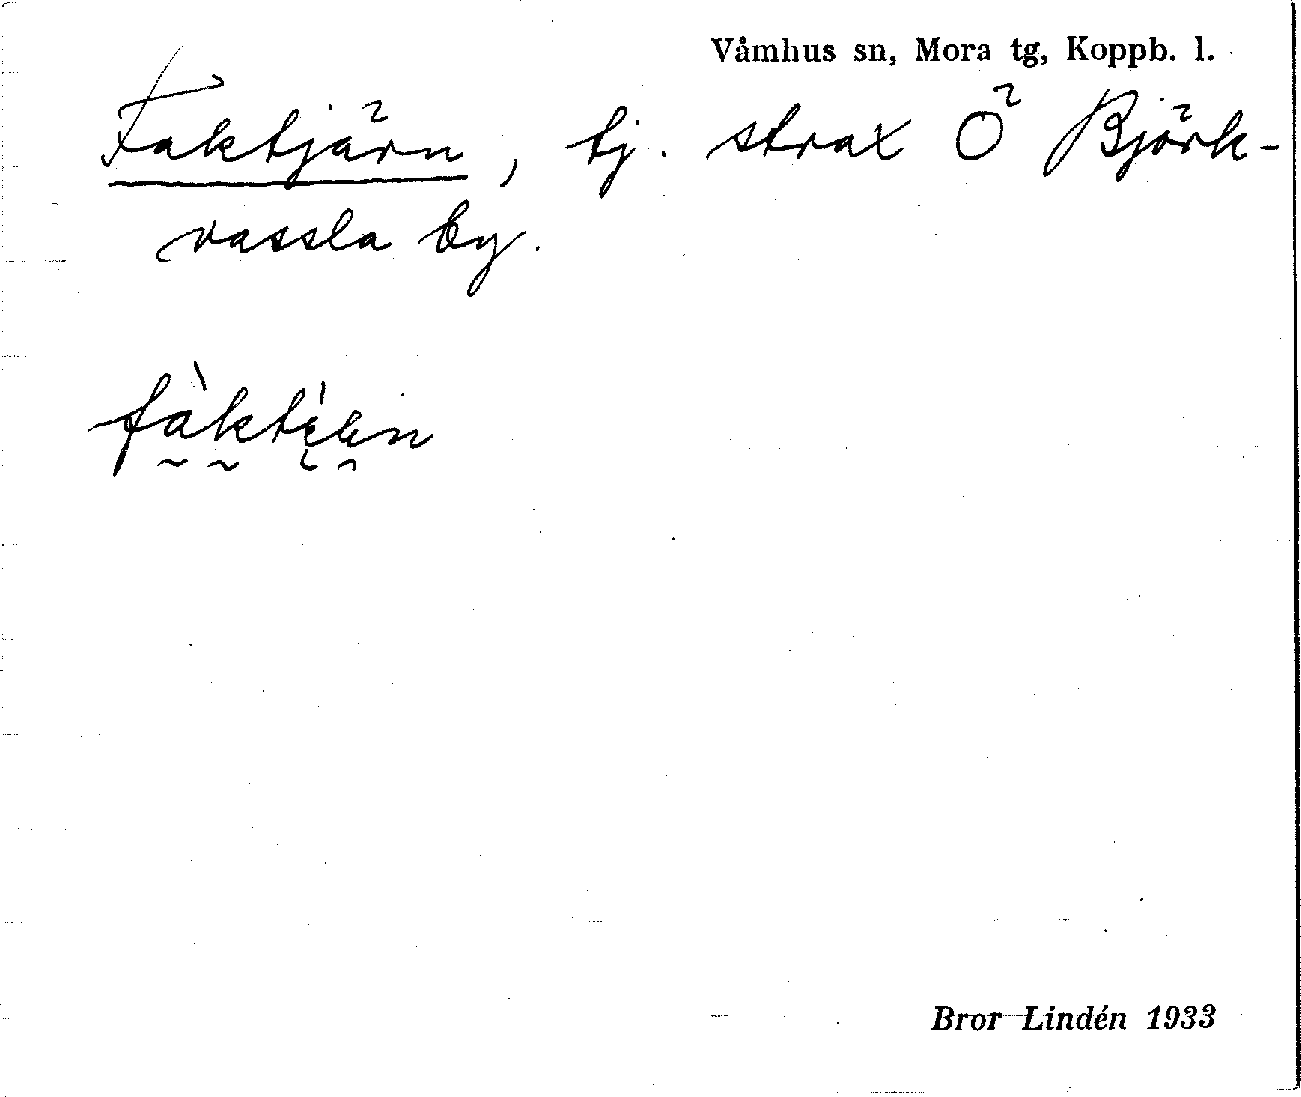 Våmhus sn, Mora tg, Koppb. l.
Faktjärn, tj. strax Ö Björk-
vassla by.
Bror Lindén 1933